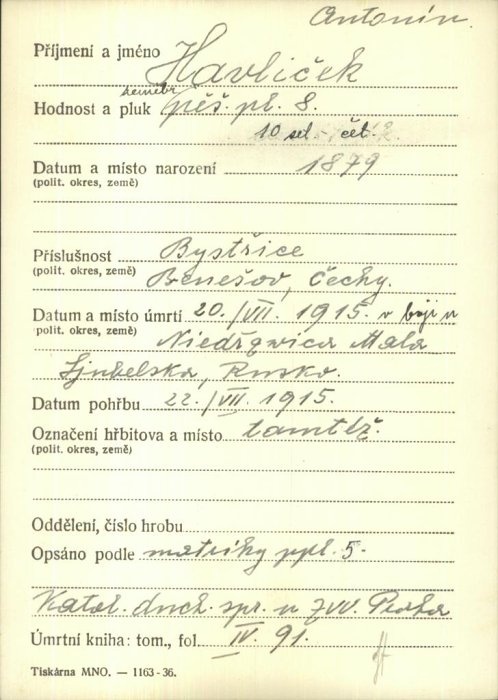 Antonín
Příjmení a jméno Havlíček
Hodnost a pluk pěš. pl. 8.
10 set. - čet.
Datum a místo narození 1879
(polit. okres, země)
Příslušnost Bystřice
(polit. okres, země) Benešov, Čechy.
Datum a místo úmrtí 20./VII. 1915. v boji u
polit. okres, země) Niedrzwica Mala
Ljubelska, Rusko.
Datum pohřbu 22./VII. 1915.
Označení hřbitova a místo tamtéž.
(polit. okres, země)
Oddělení, číslo hrobu
Opsáno podle matriky ppl. 5.
Katol. duch. spr. u ZVV. Praha
Úmrtní kniha: tom., fol. IV. 91.
Tiskárna MNO. — 1163-36.